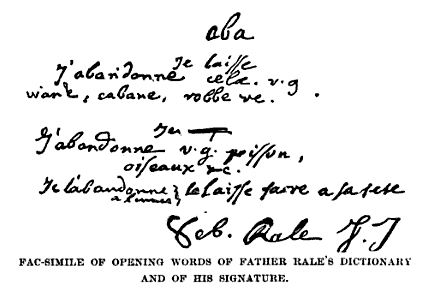 aba
Je laisse
J'abandonne cela. v.g
viande, cabane, robbe &c.
Jeu
J'abandonne v.g. poisson,
oiseaux &c.
Je l'abandonne } le laisse faire a sa teste
Seb. Rale S. J
FAC-SIMILE OF OPENING WORDS OF FATHER RALE'S DICTIONARY
AND OF HIS SIGNATURE.